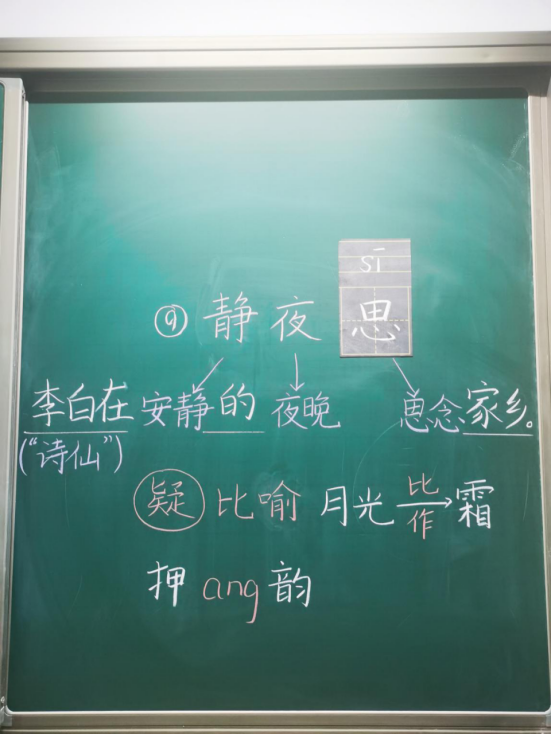 sī
⑨ 静夜思
李白在安静的 夜晚 思念家乡。
(“诗仙”)
疑 比喻 月光 比作 霜
押 ang 韵